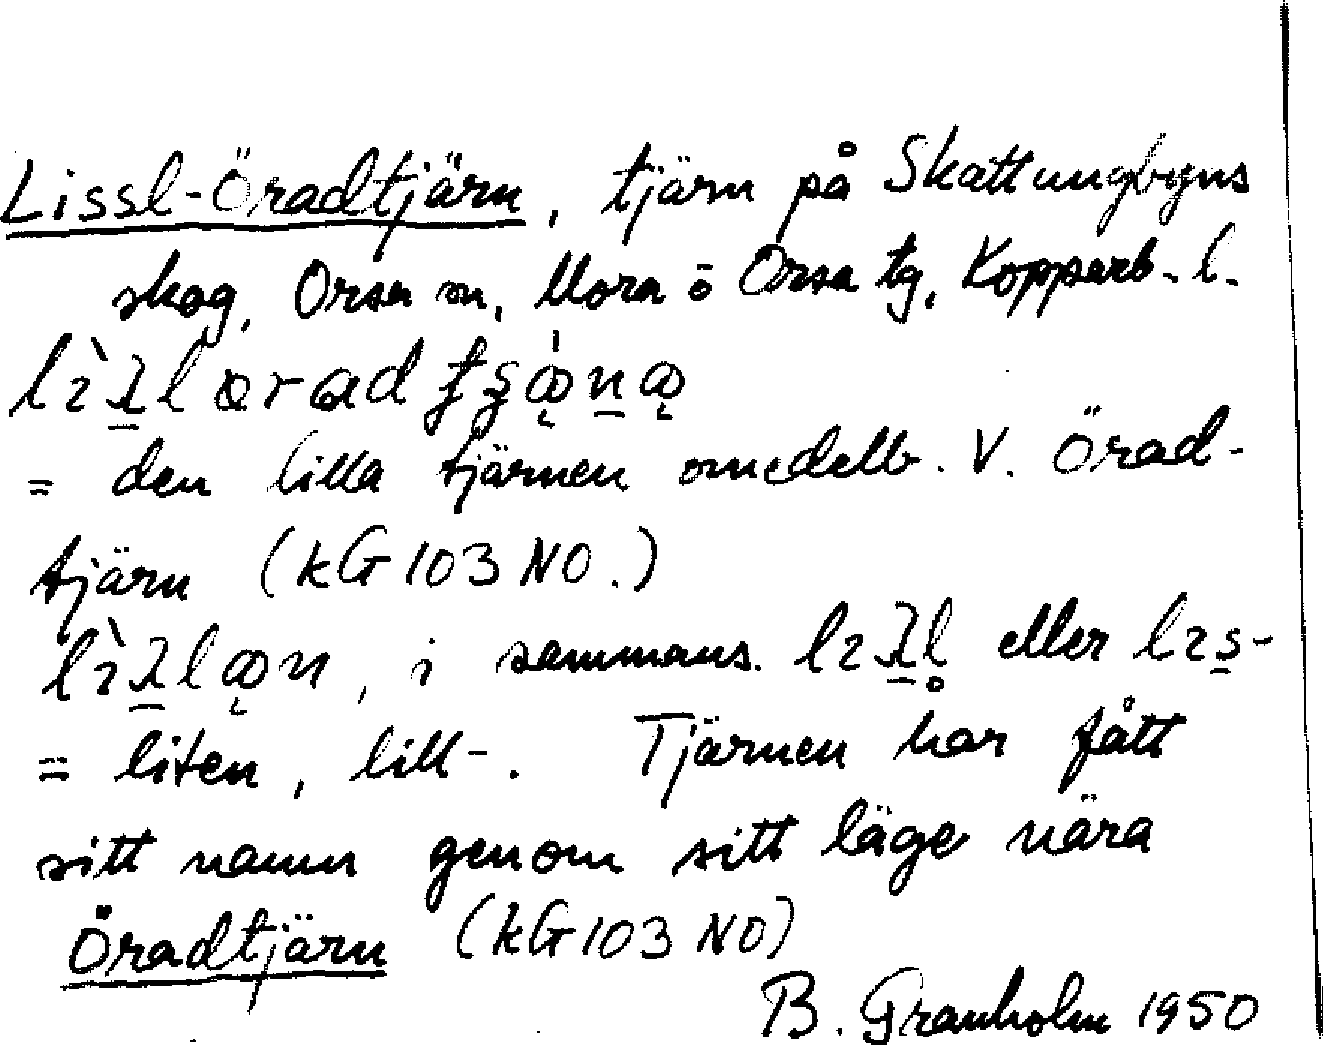 Lissl-Öradtjärn, tjärn på Skattungbyns
skog, Orsa sn, Mora o Orsa tg, Kopparb. l.
= den lilla tjärnen omedelb. V. Örad-
tjärn (kG 103 NO.)
, i sammans. eller
= liten, lill-. Tjärnen har fått
sitt namn genom sitt läge nära
Öradtjärn (kG 103 NO)
B. Granholm 1950